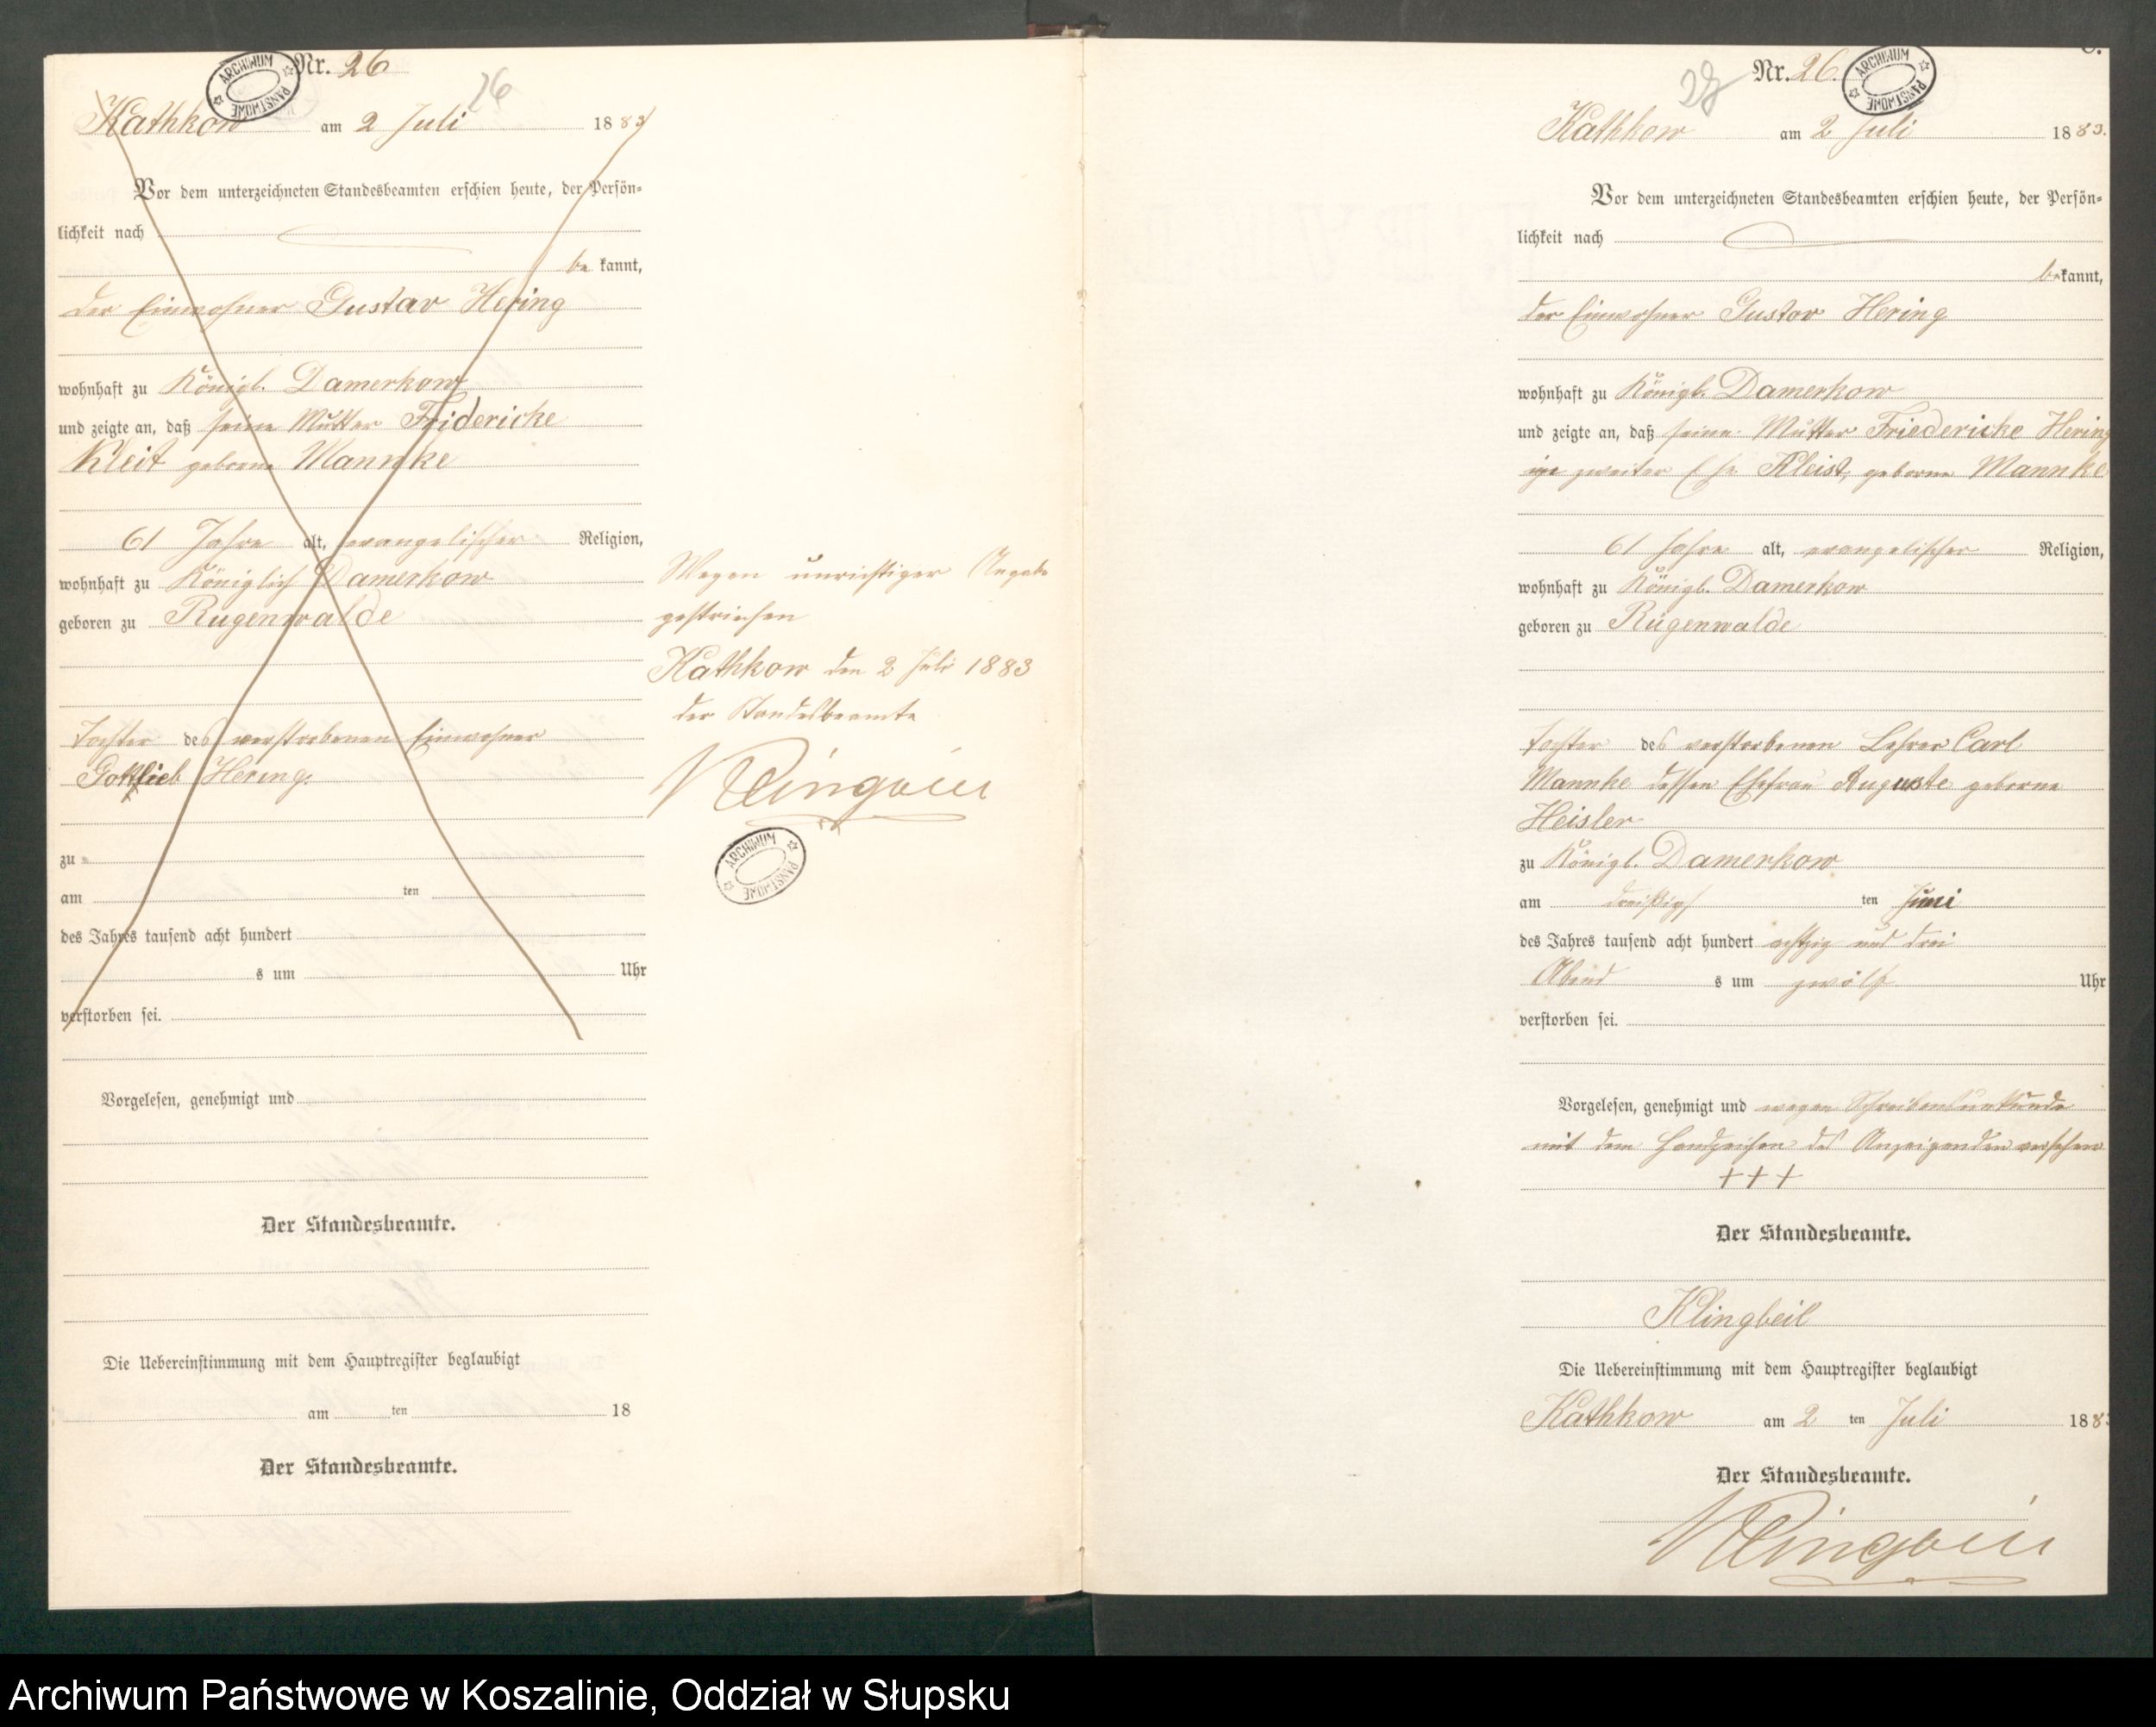 Nr. 26
26
ARCHIWUM PAŃSTWOWE
Kathkow am 2 Juli 1883
Vor dem unterzeichneten Standesbeamten erschien heute, der Persön-
lichkeit nach
be kannt,
der Einwohner Gustav Hering
wohnhaft zu Königl. Damerkow
und zeigte an, daß seine Mutter Fridericke
Kleit geborne Mannke
61 Jahre alt, evangelischer Religion,
wohnhaft zu Königlich Damerkow
geboren zu Rügenwalde
Tochter des verstorbenen Einwohner
Gottlieb Hering.
zu
am ten
des Jahres tausend acht hundert
s um Uhr
verstorben sei.
Vorgelesen, genehmigt und
Der Standesbeamte.
Die Uebereinstimmung mit dem Hauptregister beglaubigt
am ten 18
Der Standesbeamte.
Wegen unrichtiger Angabe
gestrichen
Kathkow den 2 Juli 1883
der Standesbeamte
Klingbeil
ARCHIWUM PAŃSTWOWE
Nr. 26.
ARCHIWUM PAŃSTWOWE
Kathkow am 2 Juli 1883.
Vor dem unterzeichneten Standesbeamten erschien heute, der Persön-
lichkeit nach
bekannt,
der Einwohner Gustav Hering
wohnhaft zu Königl. Damerkow
und zeigte an, daß seine Mutter Friedericke Hering
zweiter Ehe Kleist, geborne Mannke
61 Jahre alt, evangelischer Religion,
wohnhaft zu Königl. Damerkow
geboren zu Rügenwalde
Tochter des verstorbenen Lehrer Carl
Mannke dessen Ehefrau Auguste geborne
Heisler
zu Königl. Damerkow
am dreißigs ten Juni
des Jahres tausend acht hundert achtzig und drei
Abend s um zwölf Uhr
verstorben sei.
Vorgelesen, genehmigt und wegen Schreibensunkunde
mit dem Handzeichen des Anzeigenden versehen
+++
Der Standesbeamte.
Klingbeil
Die Uebereinstimmung mit dem Hauptregister beglaubigt
Kathkow am 2 ten Juli 188
Der Standesbeamte.
Klingbeil
Archiwum Państwowe w Koszalinie, Oddział w Słupsku